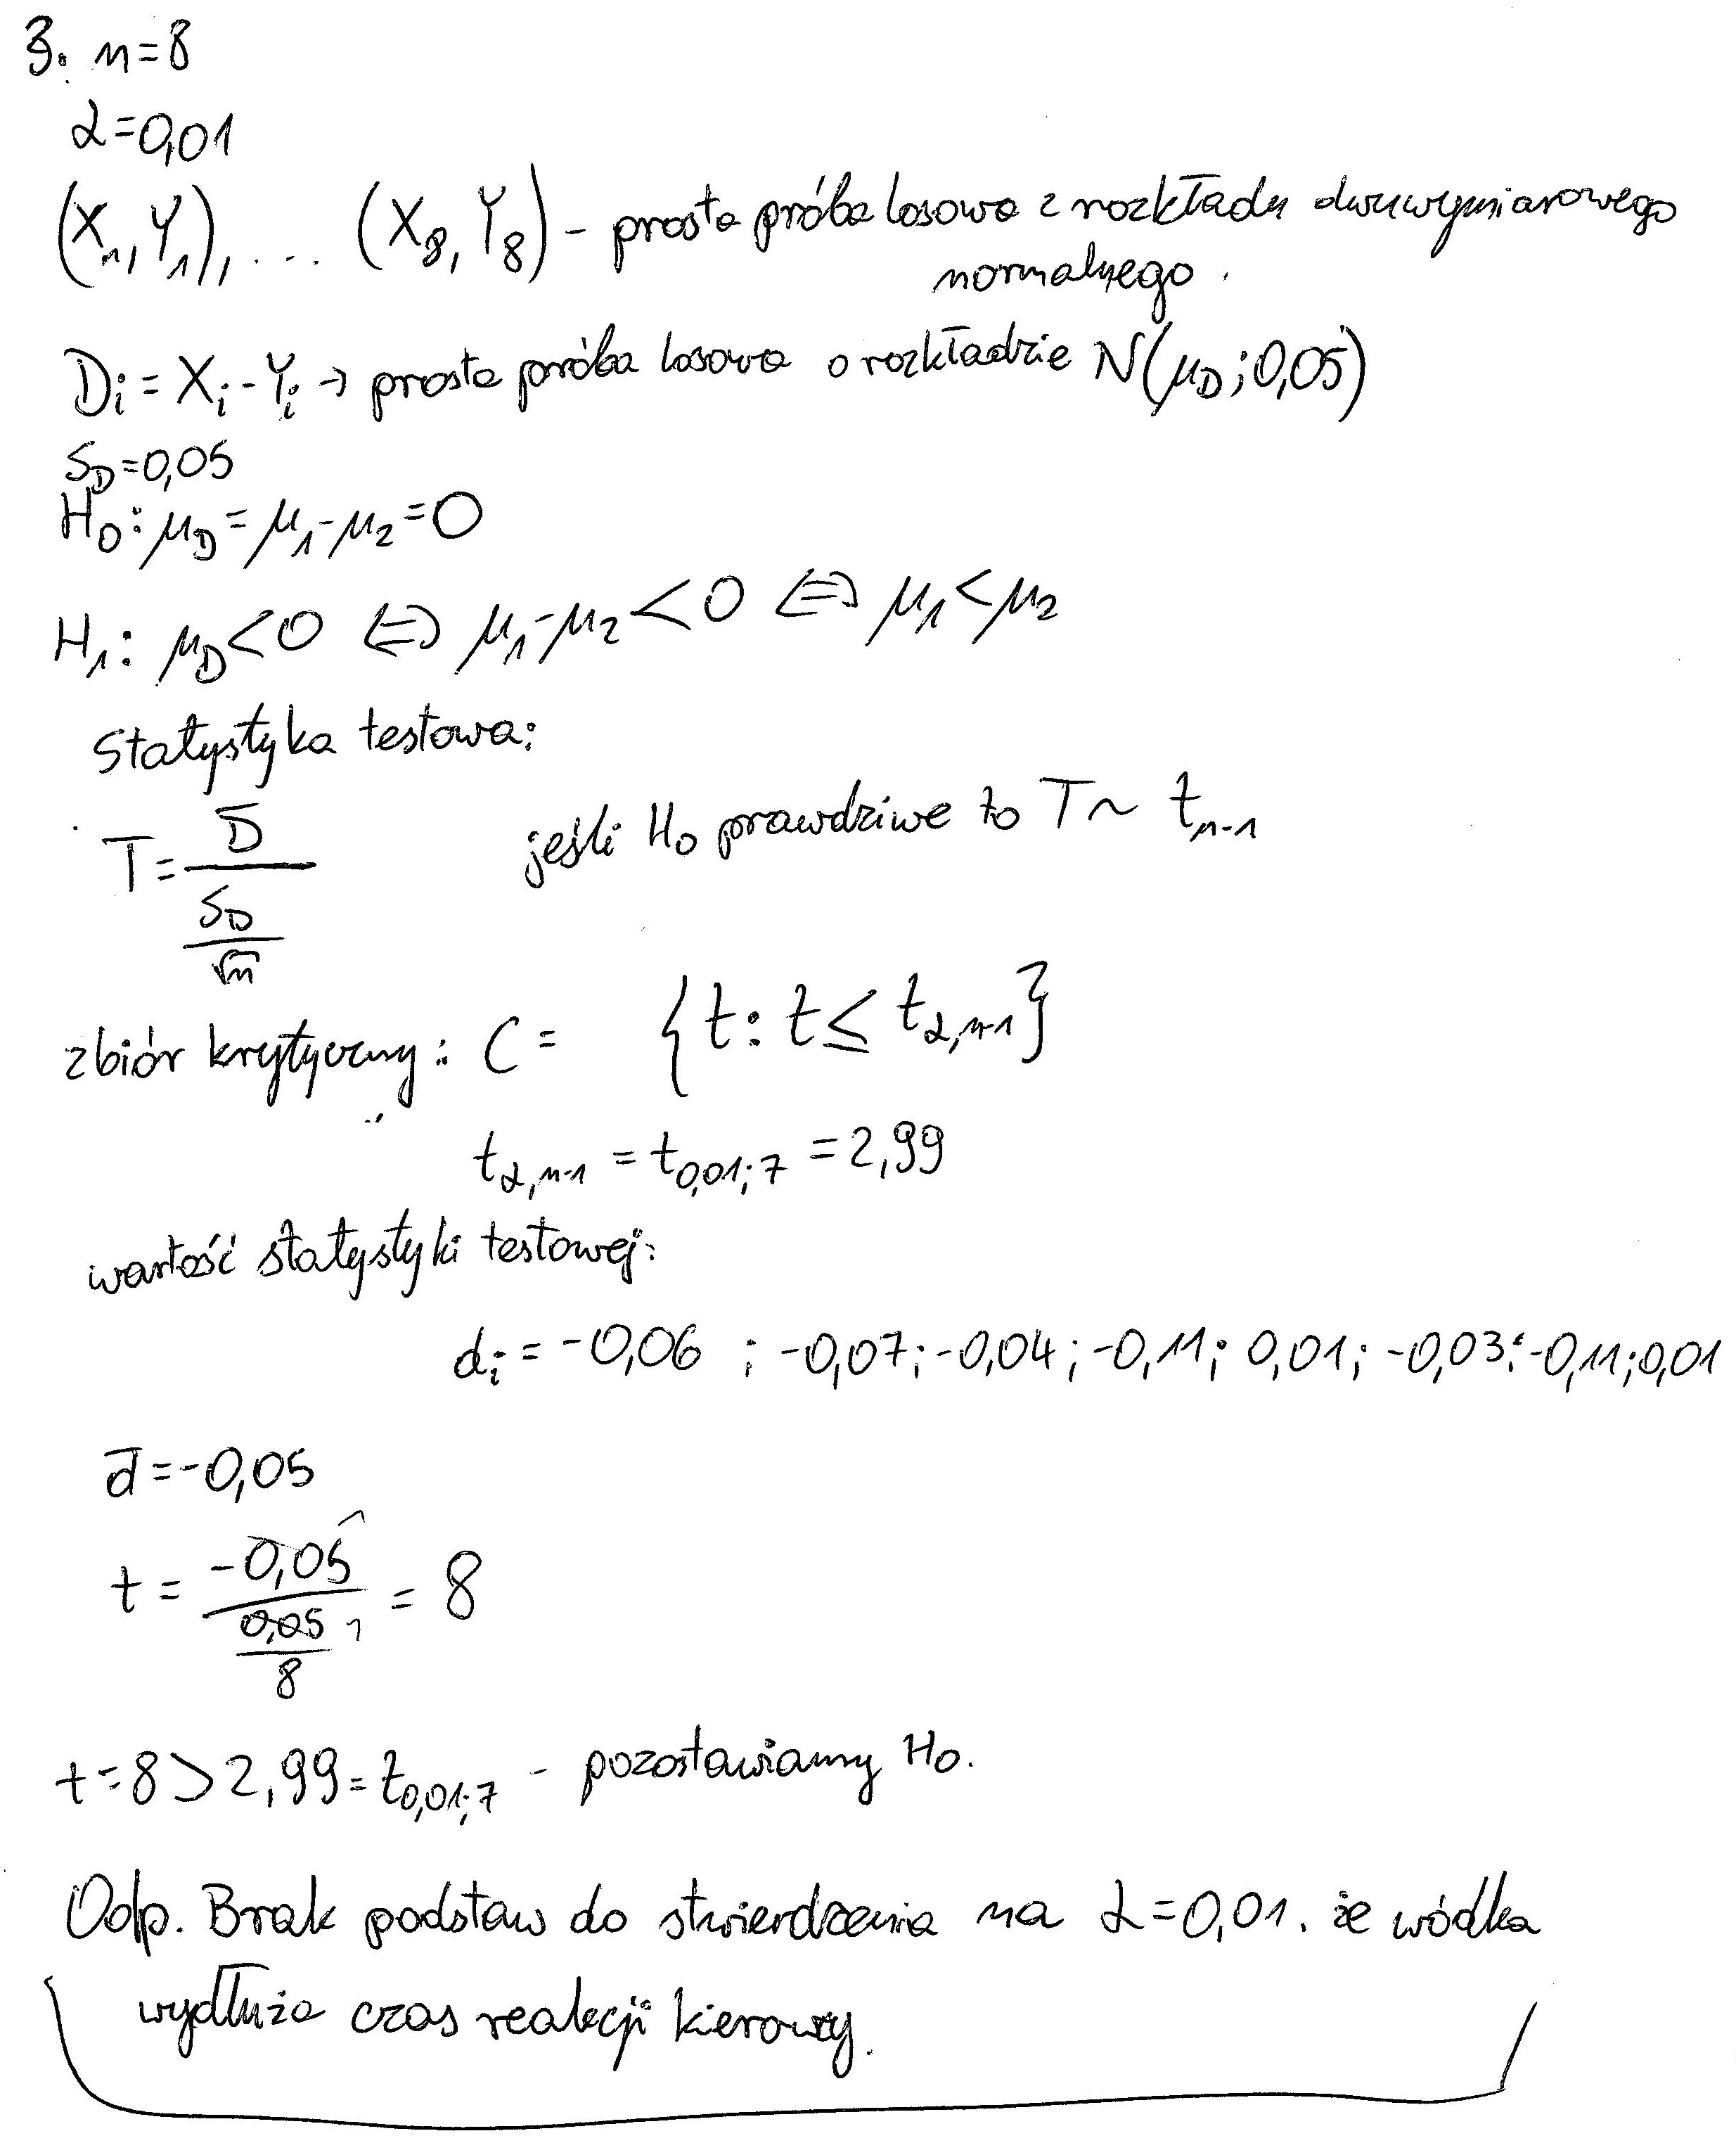 3. n=8
α=0,01
(X₁,Y₁),... (X₈,Y₈) - prosta próba losowa z rozkładu dwuwymiarowego
normalnego.
Di = Xi-Yi → prosta próba losowa o rozkładzie N(μD; 0,05)
SD=0,05
H0: μD = μ1-μ2 = 0
H1: μD<0 ⇔ μ1-μ2<0 ⇔ μ1<μ2
Statystyka testowa:
T = D̄ / (SD/√n) jeśli H0 prawdziwe to T ~ tn-1
zbiór krytyczny: C = {t: t ≤ tα,n-1}
tα,n-1 = t0,01;7 = 2,99
wartość statystyki testowej:
di = -0,06 ; -0,07; -0,04; -0,11; 0,01; -0,03; -0,11; 0,01
d̄=-0,05
t = -0,05 / (0,05/8) = 8
t=8>2,99=t0,01;7 - pozostawiamy H0.
Odp. Brak podstaw do stwierdzenia na α=0,01. że wódka
wydłuża czas reakcji kierowcy.